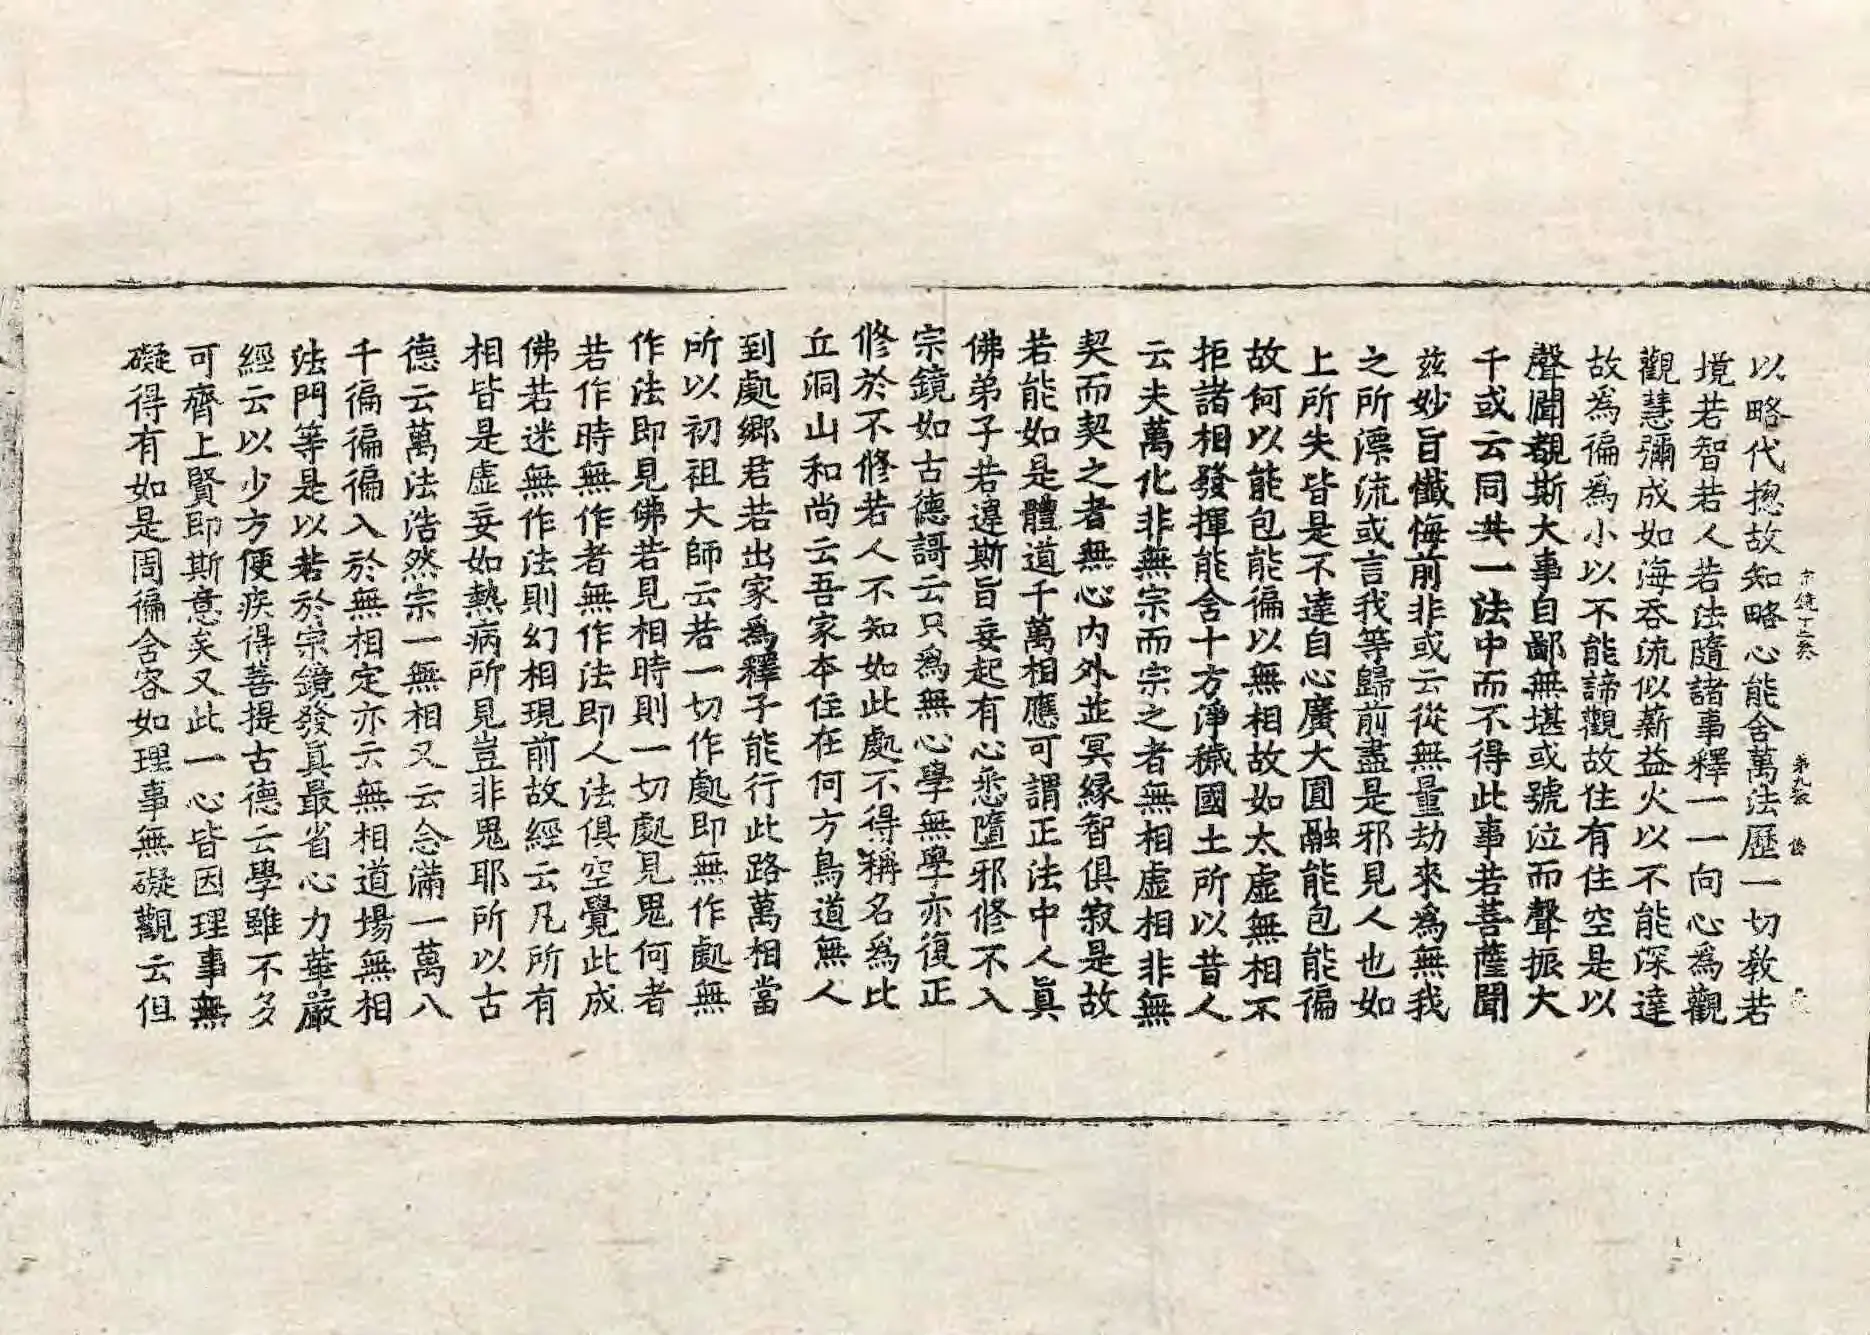 以略代揔故知略心能含萬法歷一切敎若
境若智若人若法隨諸事釋一一向心爲觀
觀慧彌成如海吞流似薪益火以不能深達
故爲徧爲小以不能諦觀故住有住空是以
聲聞覩斯大事自鄙無堪或號泣而聲振大
千或云同共一法中而不得此事若菩薩聞
茲妙旨懺悔前非或云從無量劫來爲無我
之所漂流或言我等歸前盡是邪見人也如
上所失皆是不達自心廣大圓融能包能徧
故何以能包能徧以無相故如太虛無相不
拒諸相發揮能含十方淨穢國土所以昔人
云夫萬化非無宗而宗之者無相虛相非無
契而契之者無心內外並冥緣智俱寂是故
若能如是體道千萬相應可謂正法中人眞
佛弟子若違斯旨妄起有心悉墮邪修不入
宗鏡如古德謌云只爲無心學無學亦復正
修於不修若人不知如此處不得稱名爲比
丘洞山和尚云吾家本住在何方鳥道無人
到處鄉君若出家爲釋子能行此路萬相當
所以初祖大師云若一切作處即無作處無
作法即見佛若見相時則一切處見鬼何者
若作時無作者無作法即人法俱空覺此成
佛若迷無作法則幻相現前故經云凡所有
相皆是虛妄如熱病所見豈非鬼耶所以古
德云萬法浩然宗一無相又云念滿一萬八
千徧徧徧入於無相定亦云無相道場無相
法門等是以若於宗鏡發眞最省心力華嚴
經云以少方便疾得菩提古德云學雖不多
可齊上賢即斯意矣又此一心皆因理事無
礙得有如是周徧含容如理事無礙觀云但